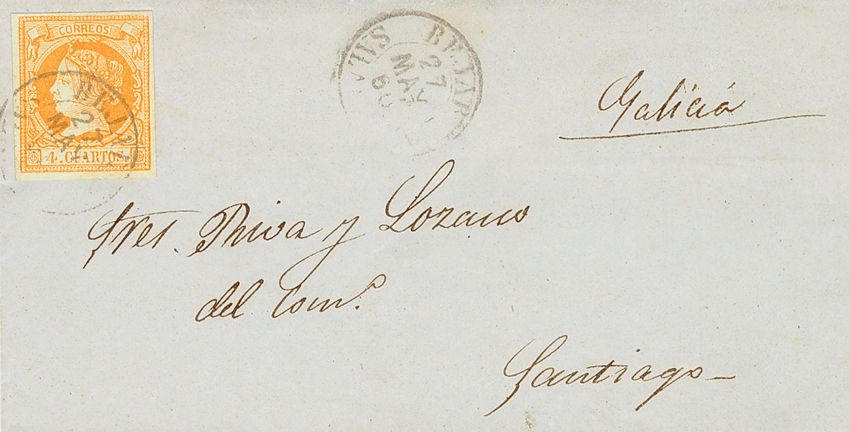 CORREOS
4. CUARTOS
BEJAR
27
MAY
BEJAR
27
MAY
60
Galicia
Sres. Riva y Lozano
del Com.º
Santiago